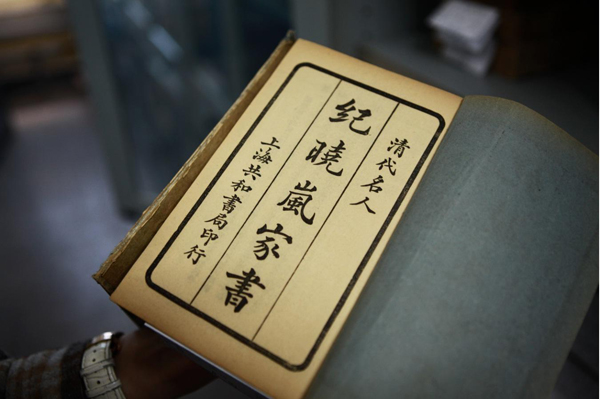 清代名人
紀曉嵐家書
上海共和書局印行